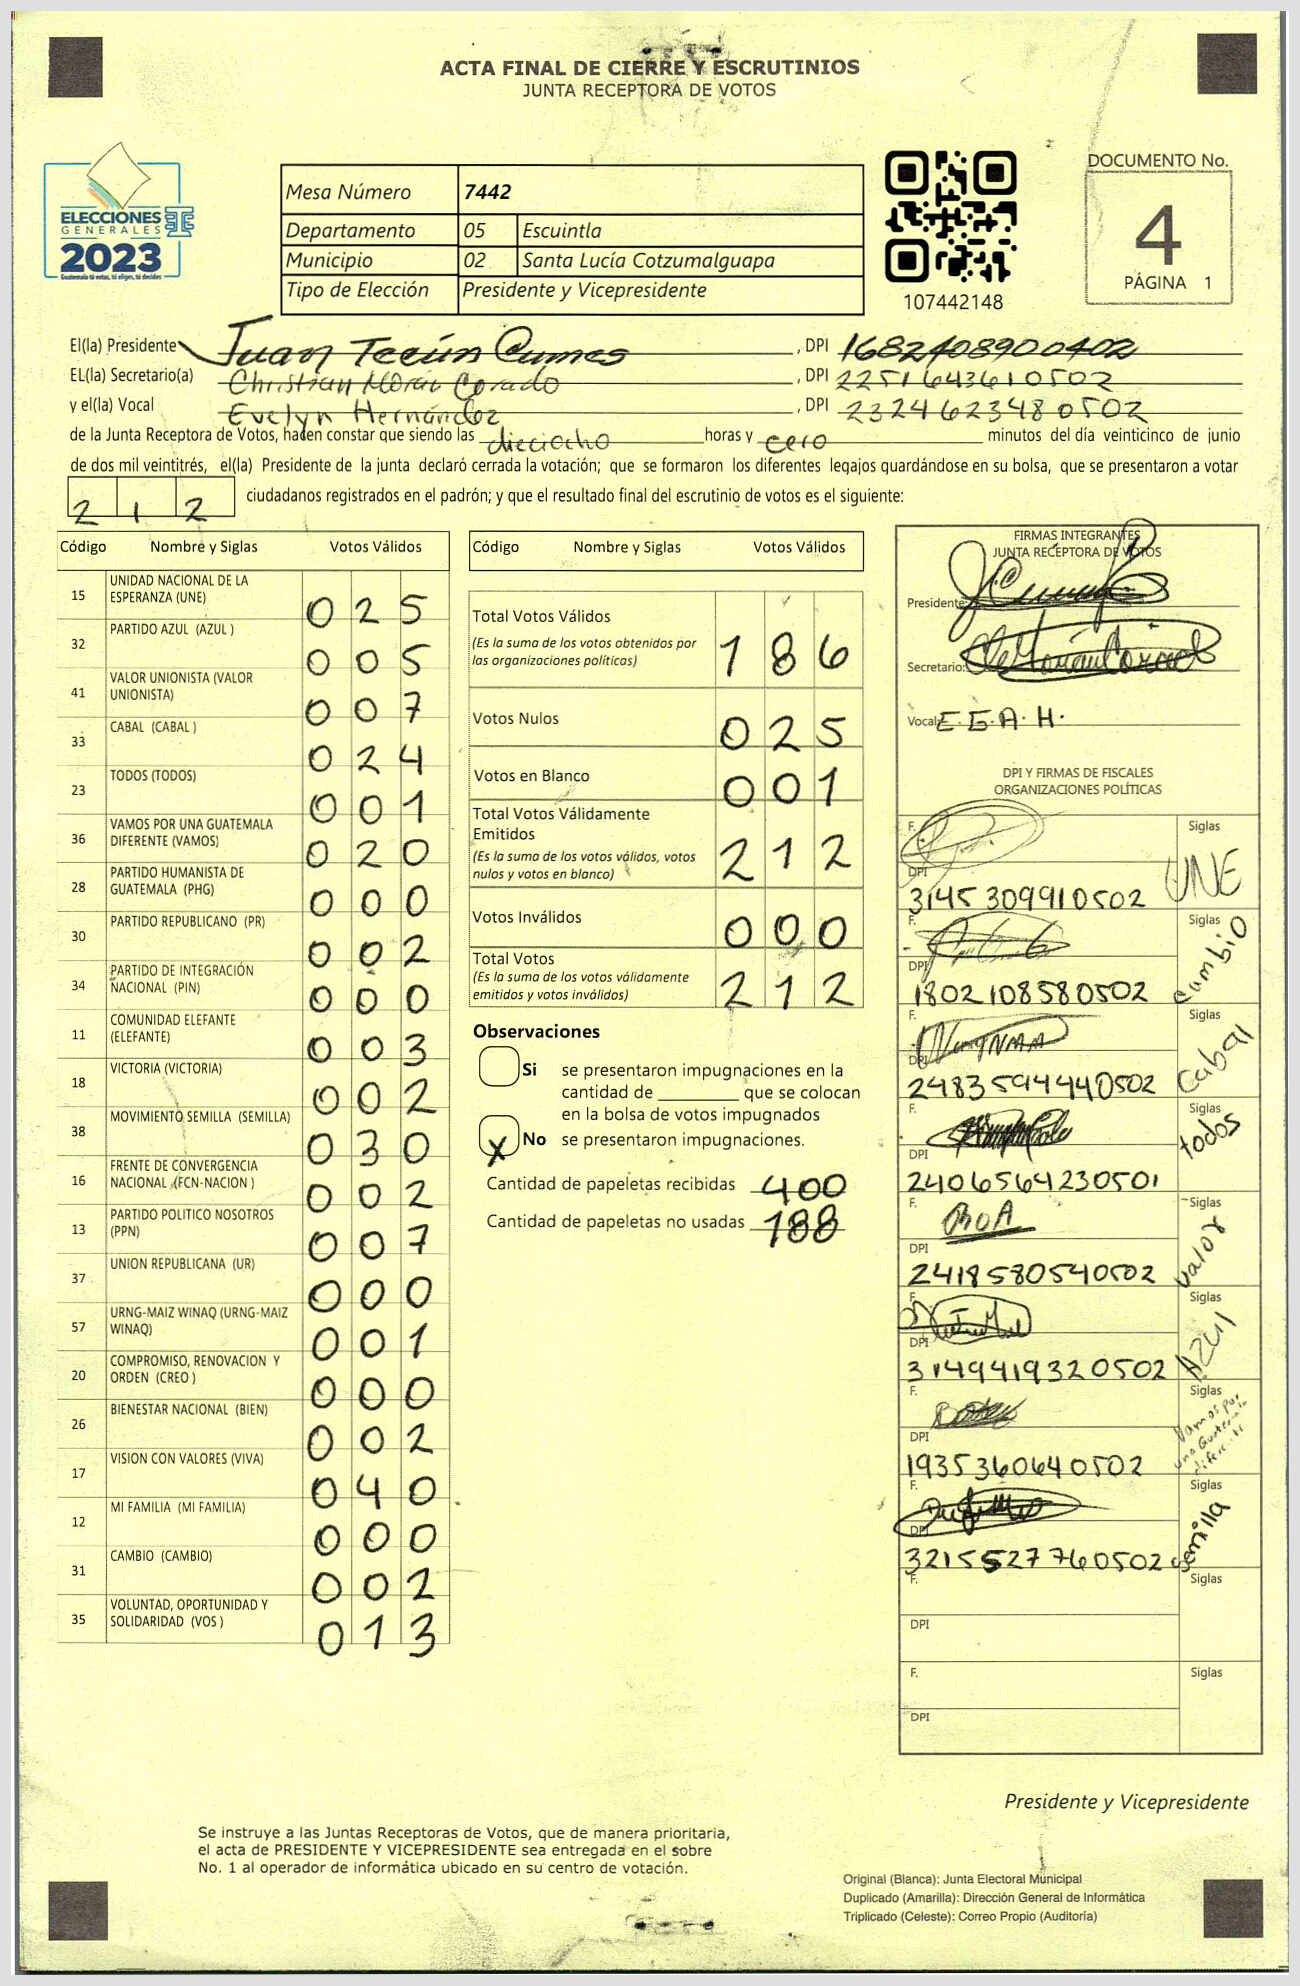 ACTA FINAL DE CIERRE Y ESCRUTINIOS
JUNTA RECEPTORA DE VOTOS
ELECCIONES
GENERALES
2023
Guatemala tú votas, tú eliges, tú decides
Mesa Número 7442
Departamento 05 Escuintla
Municipio 02 Santa Lucía Cotzumalguapa
Tipo de Elección Presidente y Vicepresidente
107442148
DOCUMENTO No.
4
PÁGINA 1
El(la) Presidente Juan Tecún Cumes, DPI 1682408900402
EL(la) Secretario(a) Christian Morán Corado, DPI 2251643610502
y el(la) Vocal Evelyn Hernández, DPI 2324623480502
de la Junta Receptora de Votos, hacen constar que siendo las dieciocho horas y cero minutos del día veinticinco de junio
de dos mil veintitrés, el(la) Presidente de la junta declaró cerrada la votación; que se formaron los diferentes legajos guardándose en su bolsa, que se presentaron a votar
212 ciudadanos registrados en el padrón; y que el resultado final del escrutinio de votos es el siguiente:
Código Nombre y Siglas Votos Válidos
15 UNIDAD NACIONAL DE LA ESPERANZA (UNE) 025
32 PARTIDO AZUL (AZUL ) 005
41 VALOR UNIONISTA (VALOR UNIONISTA) 007
33 CABAL (CABAL ) 024
23 TODOS (TODOS) 001
36 VAMOS POR UNA GUATEMALA DIFERENTE (VAMOS) 020
28 PARTIDO HUMANISTA DE GUATEMALA (PHG) 000
30 PARTIDO REPUBLICANO (PR) 002
34 PARTIDO DE INTEGRACIÓN NACIONAL (PIN) 000
11 COMUNIDAD ELEFANTE (ELEFANTE) 003
18 VICTORIA (VICTORIA) 002
38 MOVIMIENTO SEMILLA (SEMILLA) 030
16 FRENTE DE CONVERGENCIA NACIONAL (FCN-NACION ) 002
13 PARTIDO POLITICO NOSOTROS (PPN) 007
37 UNION REPUBLICANA (UR) 000
57 URNG-MAIZ WINAQ (URNG-MAIZ WINAQ) 001
20 COMPROMISO, RENOVACION Y ORDEN (CREO ) 000
26 BIENESTAR NACIONAL (BIEN) 002
17 VISION CON VALORES (VIVA) 040
12 MI FAMILIA (MI FAMILIA) 000
31 CAMBIO (CAMBIO) 002
35 VOLUNTAD, OPORTUNIDAD Y SOLIDARIDAD (VOS ) 013
Código Nombre y Siglas Votos Válidos
Total Votos Válidos 186
(Es la suma de los votos obtenidos por
las organizaciones políticas)
Votos Nulos 025
Votos en Blanco 001
Total Votos Válidamente
Emitidos 212
(Es la suma de los votos válidos, votos
nulos y votos en blanco)
Votos Inválidos 000
Total Votos 212
(Es la suma de los votos válidamente
emitidos y votos inválidos)
Observaciones
Si se presentaron impugnaciones en la
cantidad de ________ que se colocan
en la bolsa de votos impugnados
X No se presentaron impugnaciones.
Cantidad de papeletas recibidas 400
Cantidad de papeletas no usadas 188
FIRMAS INTEGRANTES
JUNTA RECEPTORA DE VOTOS
Presidente:
Secretario:
Vocal: E.G.A.H.
DPI Y FIRMAS DE FISCALES
ORGANIZACIONES POLÍTICAS
F. Siglas UNE
DPI 3145309910502
F. Siglas cambio
DPI 1802108580502
F. Siglas Cabal
DPI 2483594440502
F. Siglas todos
DPI 2406564230501
F. Siglas valor
DPI 2418580540502
F. Siglas AZUL
DPI 3149419320502
F. Siglas Vamos por una Guatemala diferente
DPI 1935360640502
F. Siglas Semilla
DPI 3215527760502
F. Siglas
DPI
F. Siglas
DPI
Presidente y Vicepresidente
Se instruye a las Juntas Receptoras de Votos, que de manera prioritaria,
el acta de PRESIDENTE Y VICEPRESIDENTE sea entregada en el sobre
No. 1 al operador de informática ubicado en su centro de votación.
Original (Blanca): Junta Electoral Municipal
Duplicado (Amarilla): Dirección General de Informática
Triplicado (Celeste): Correo Propio (Auditoría)